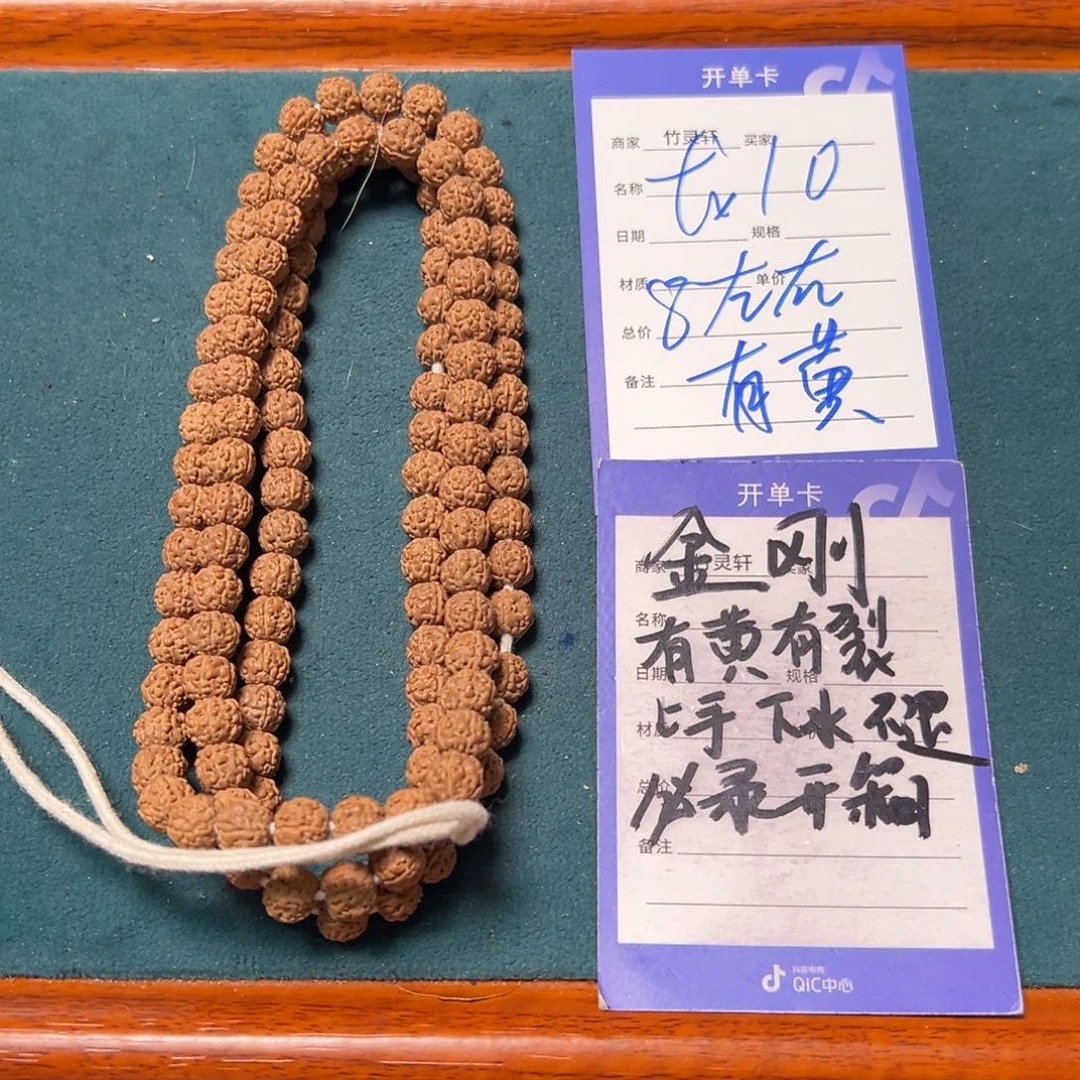 开单卡
商家 竹灵轩 买家
tx10
名称
日期 规格
材质 单价
8左右
总价
有黄
备注
开单卡
金刚
商家 竹灵轩 买家
名称
有黄有裂
日期 规格
上手下水不退
总价
必录开箱
备注
抖音电商
QIC中心